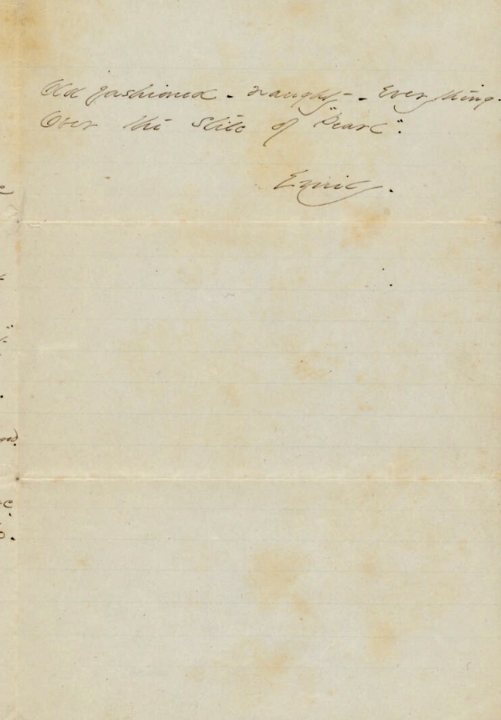 Old fashioned - naughty - Everything -
Over the Stile of "Pearl".
Emily.